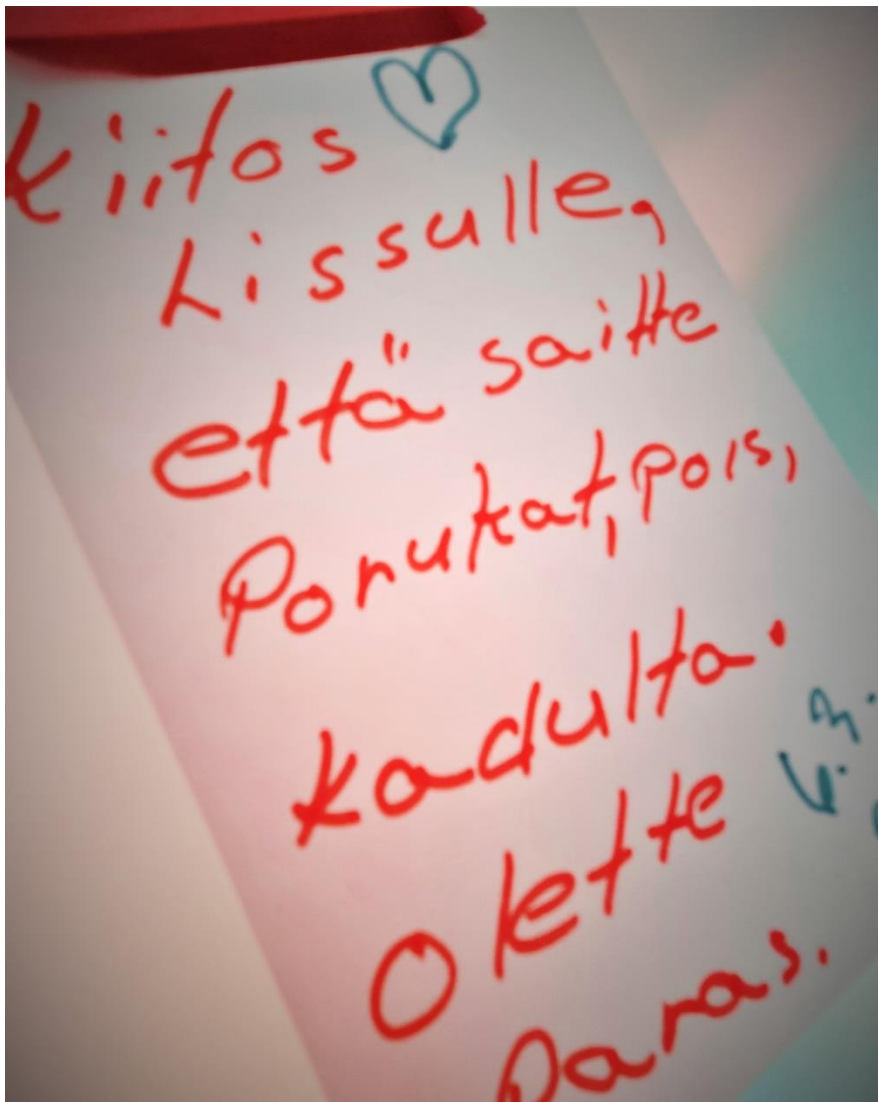 Kiitos
Lissulle,
että saitte
Porukat, pois,
kadulta.
Olette
Paras.